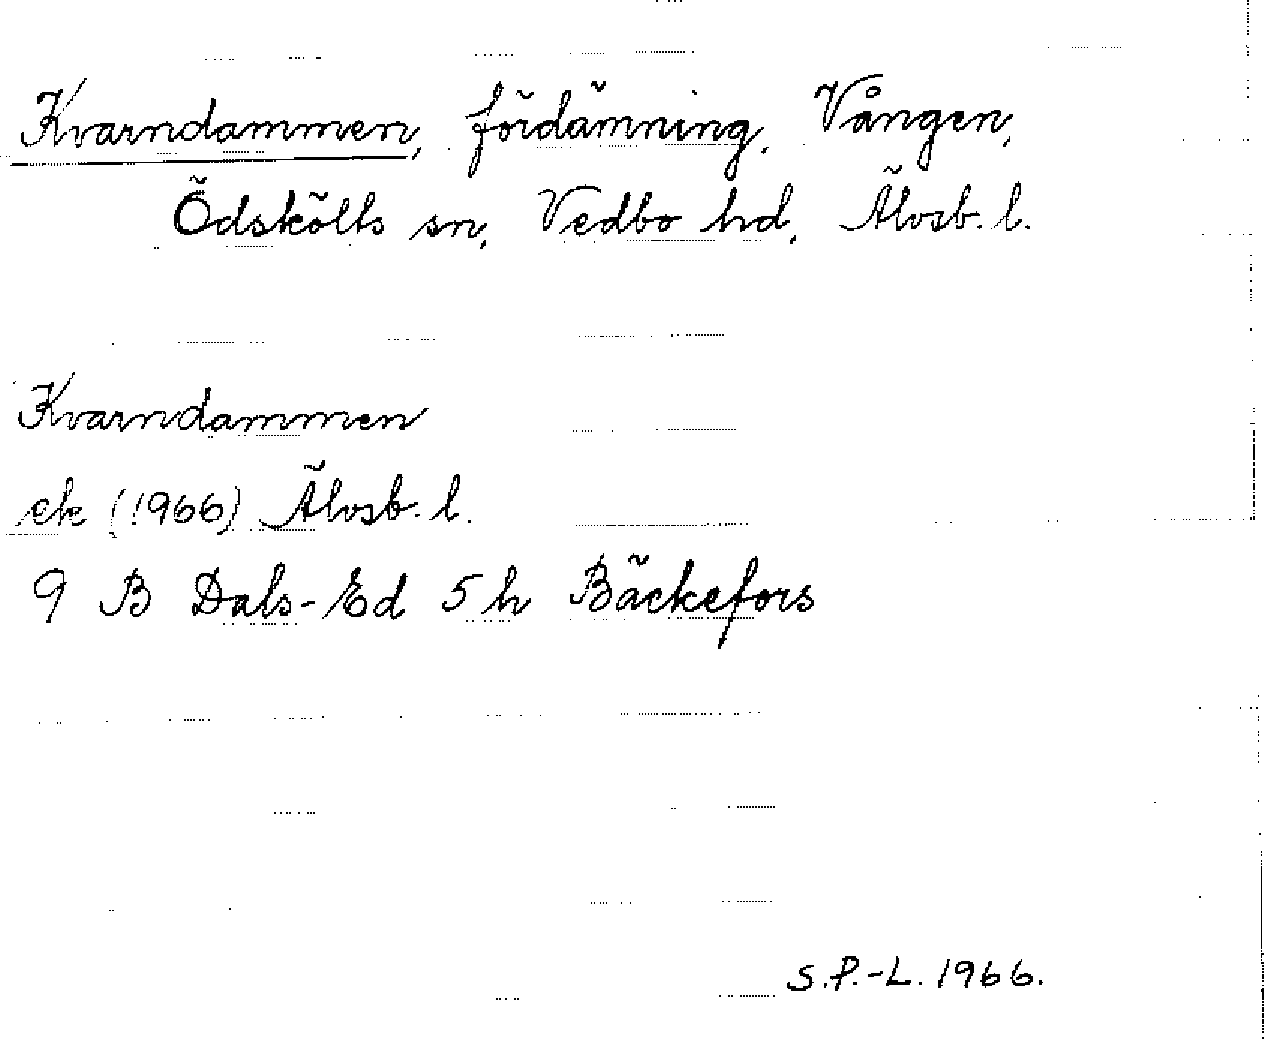 Kvarndammen, fördämning, Vången,
Ödskölts sn, Vedbo hd, Älvsb. l.
Kvarndammen
ek (1966) Älvsb. l.
9 B Dals-Ed 5 h Bäckefors
S.P.-L. 1966.